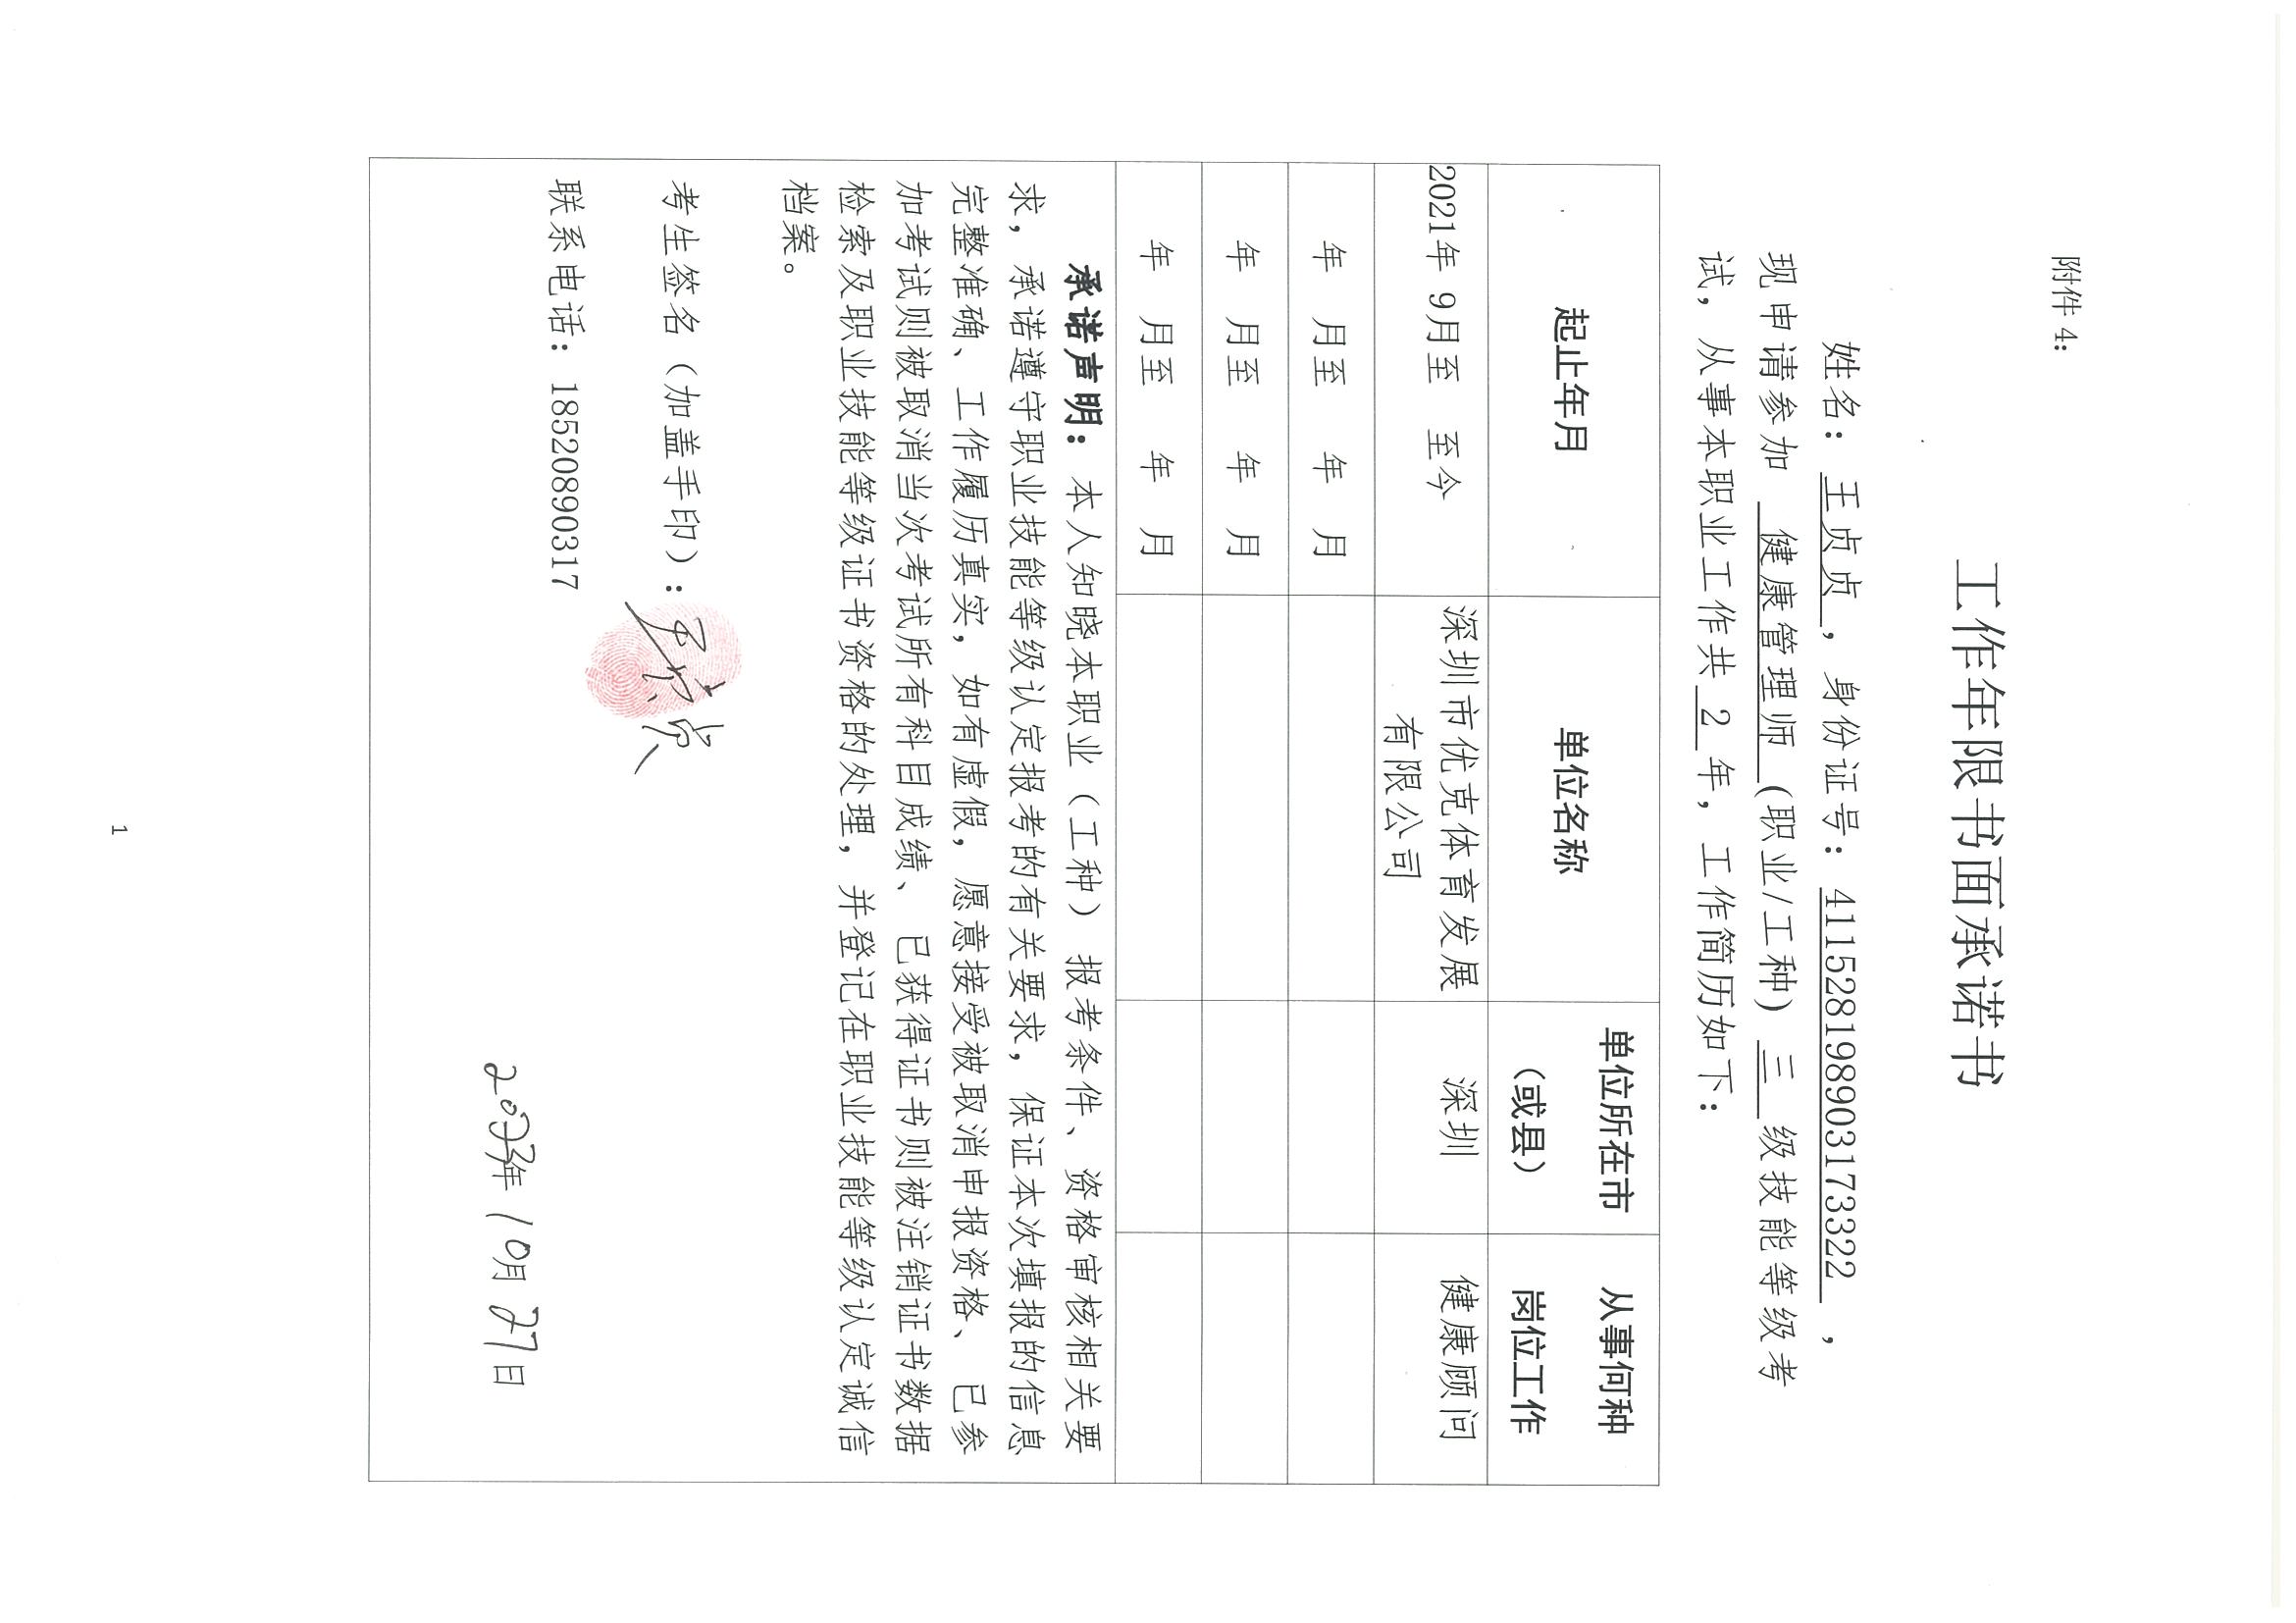 附件 4：
工作年限书面承诺书
姓名：王贞贞，身份证号：411528198903173322，
现申请参加 健康管理师 (职业/工种) 三 级技能等级考
试，从事本职业工作共 2 年，工作简历如下：
起止年月 单位名称 单位所在市（或县） 从事何种岗位工作
2021年 9月至 至今 深圳市优克体育发展有限公司 深圳 健康顾问
年 月至 年 月
年 月至 年 月
年 月至 年 月
承诺声明：本人知晓本职业（工种）报考条件、资格审核相关要
求，承诺遵守职业技能等级认定报考的有关要求，保证本次填报的信息
完整准确、工作履历真实，如有虚假，愿意接受被取消申报资格、已参
加考试则被取消当次考试所有科目成绩、已获得证书则被注销证书数据
检索及职业技能等级证书资格的处理，并登记在职业技能等级认定诚信
档案。
考生签名（加盖手印）：王贞贞
联系电话：18520890317
2023年 10月 27日
1